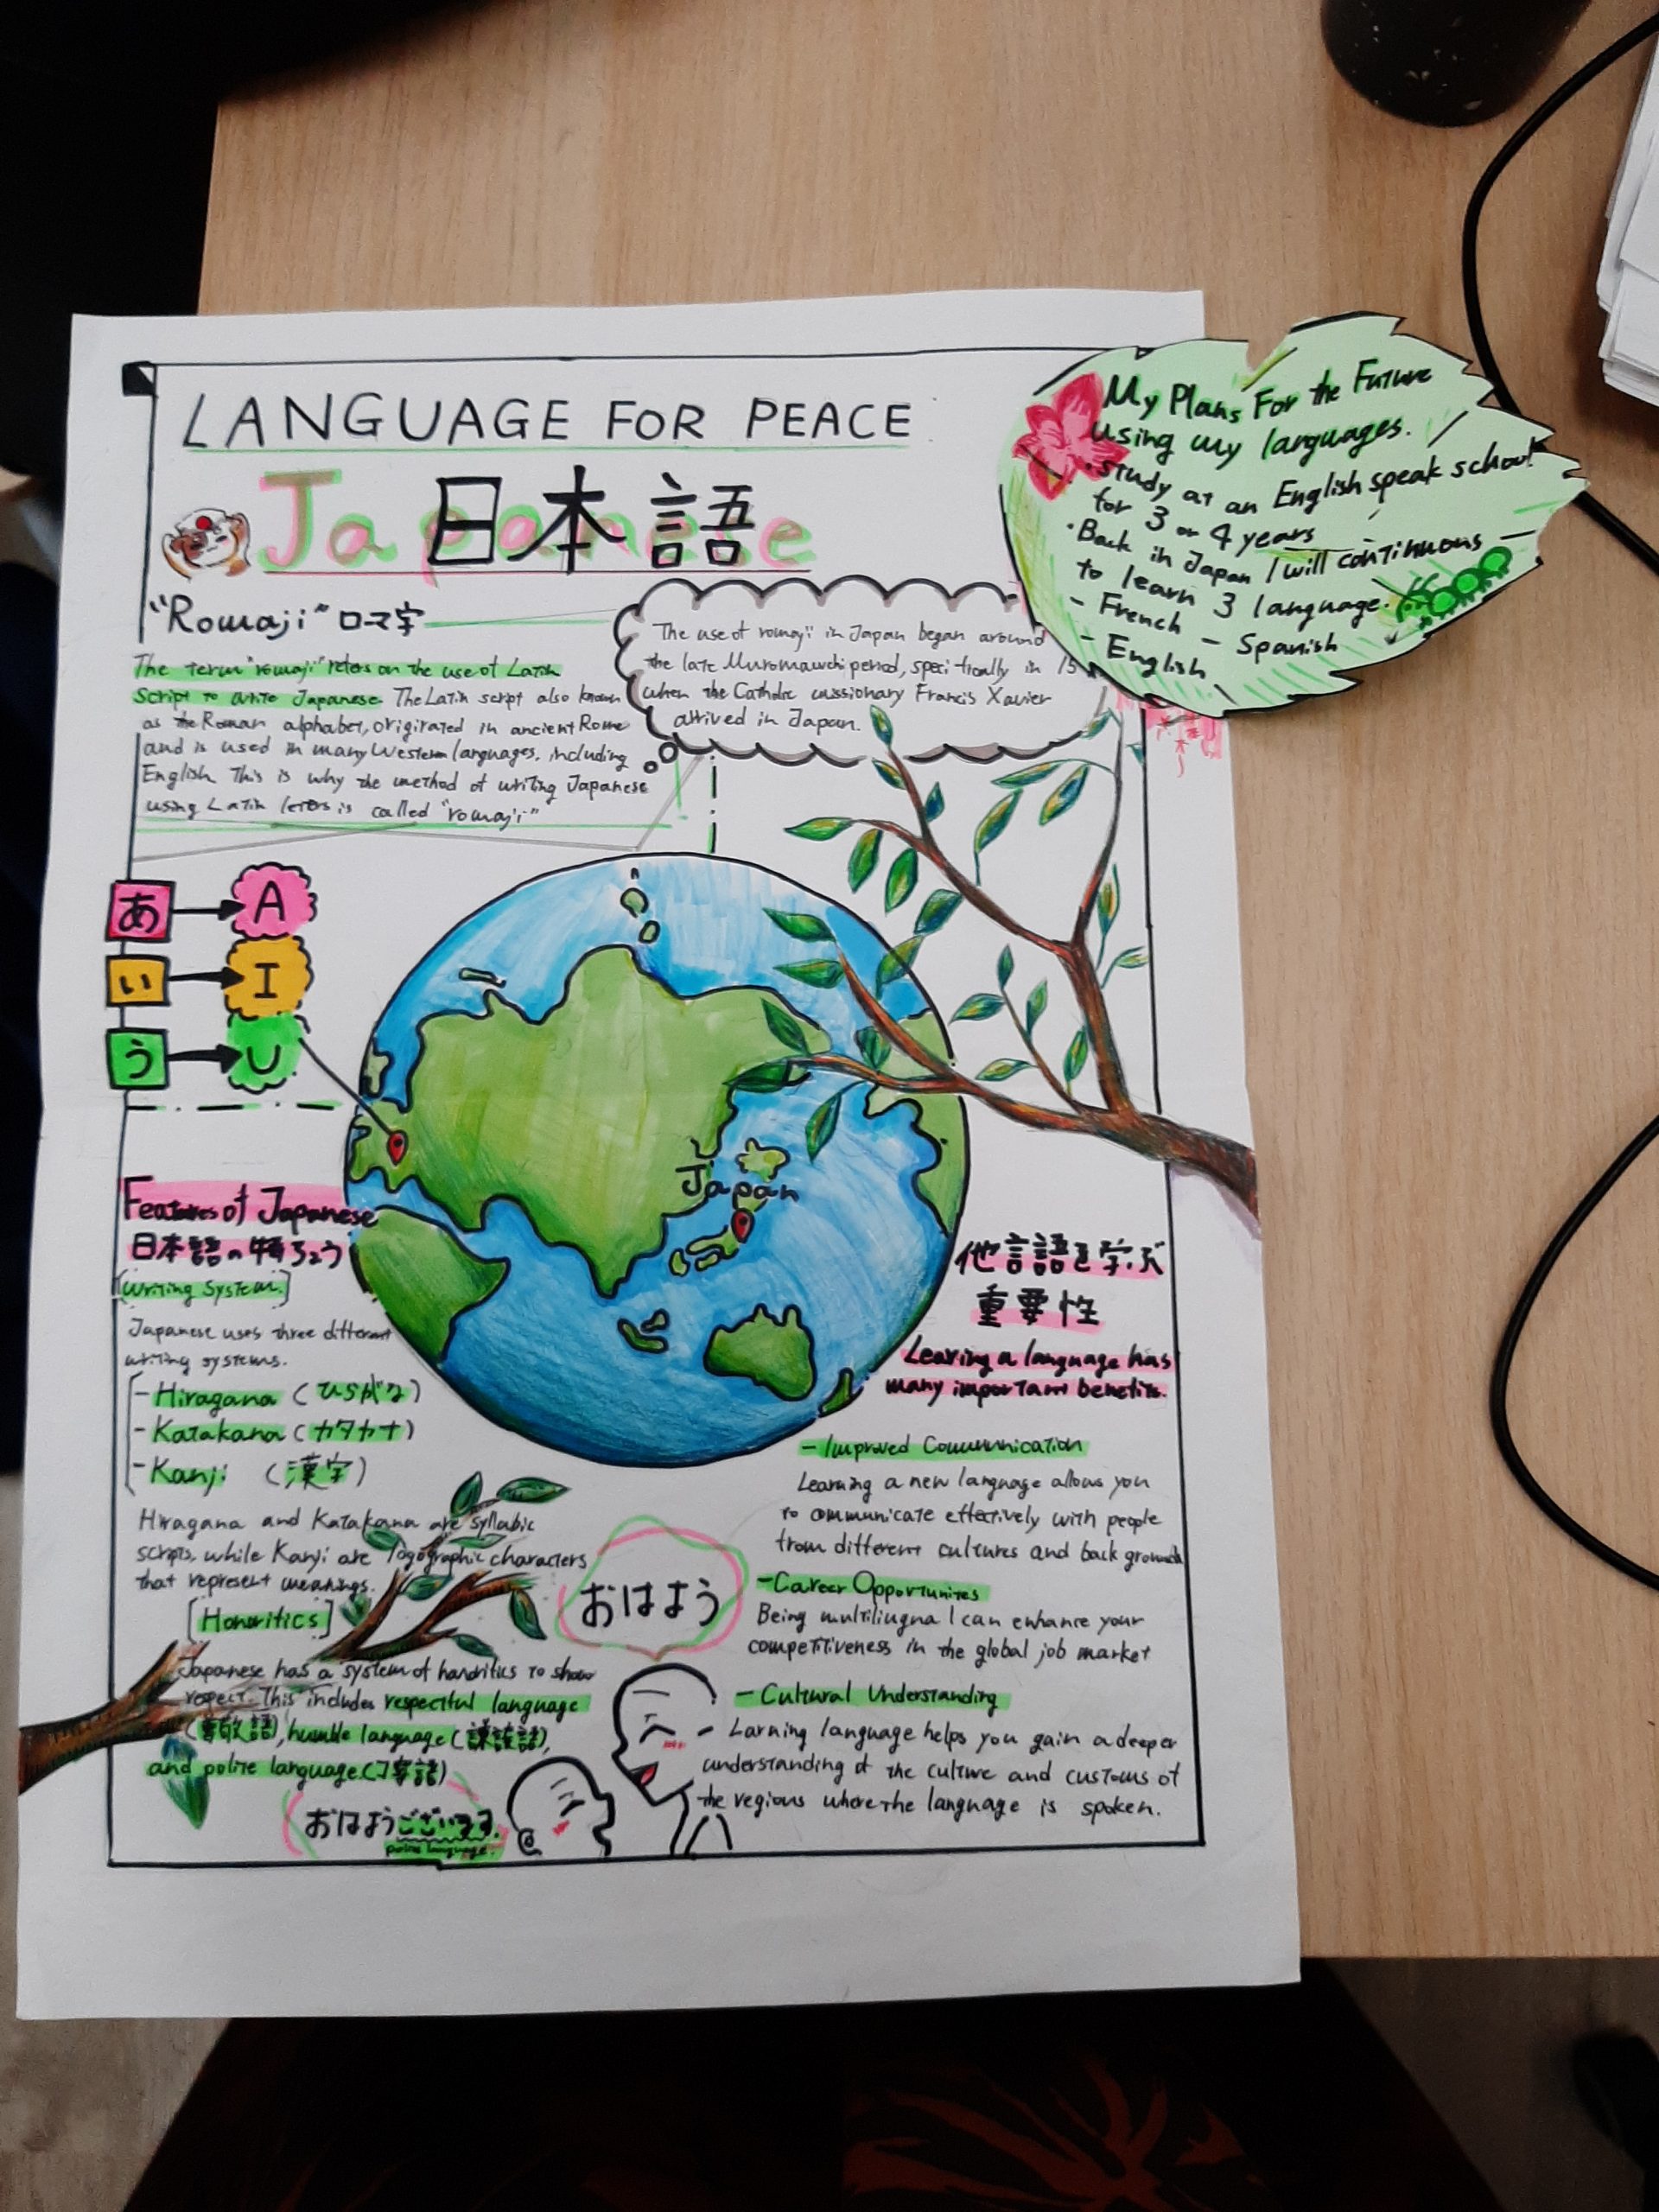 LANGUAGE FOR PEACE
Japanese
日本語
"Romaji" ローマ字
The term "romaji" refers on the use of Latin
Script to write Japanese. The Latin script also known
as the Roman alphabet, origirated in ancient Rome
and is used in many Western languages, including
English. This is why the method of writing Japanese
using Latin leters is called "romaji"
The use of romaji in Japan began around
the late Muromawchi period, specifically in 15
when the Catholic missionary Francis Xavier
arrived in Japan.
My Plans For the Future
using my languages.
· Study at an English speak school
for 3 or 4 years
· Back in Japan I will continuous
to learn 3 language.
- French - Spanish
- English
あ → A
い → I
う → U
Japan
Features of Japanese
日本語の特ちょう
[Writing System.]
Japanese uses three different
writing systems.
- Hiragana (ひらがな)
- Katakana (カタカナ)
- Kanji (漢字)
Hiragana and Katakana are syllabic
scripts, while Kanji are logographic characters
that represent meanings.
[Honoritics]
Japanese has a system of honoritics to show
respect. This includes respectful language
(敬語), humble language (謙譲語),
and polite language (丁寧語)
おはよう
おはようございます.
polite language.
他言語を学ぶ
重要性
Learing a language has
many important benefits.
- Improved Communication
Learning a new language allows you
to communicate effectively with people
from different cultures and back grounds
- Career Opportunites
Being multiliugna l can enhance your
competitiveness in the global job market
- Cultural Understanding
Larning language helps you gain a deeper
understanding of the culture and customs of
the regions where the language is spoken.